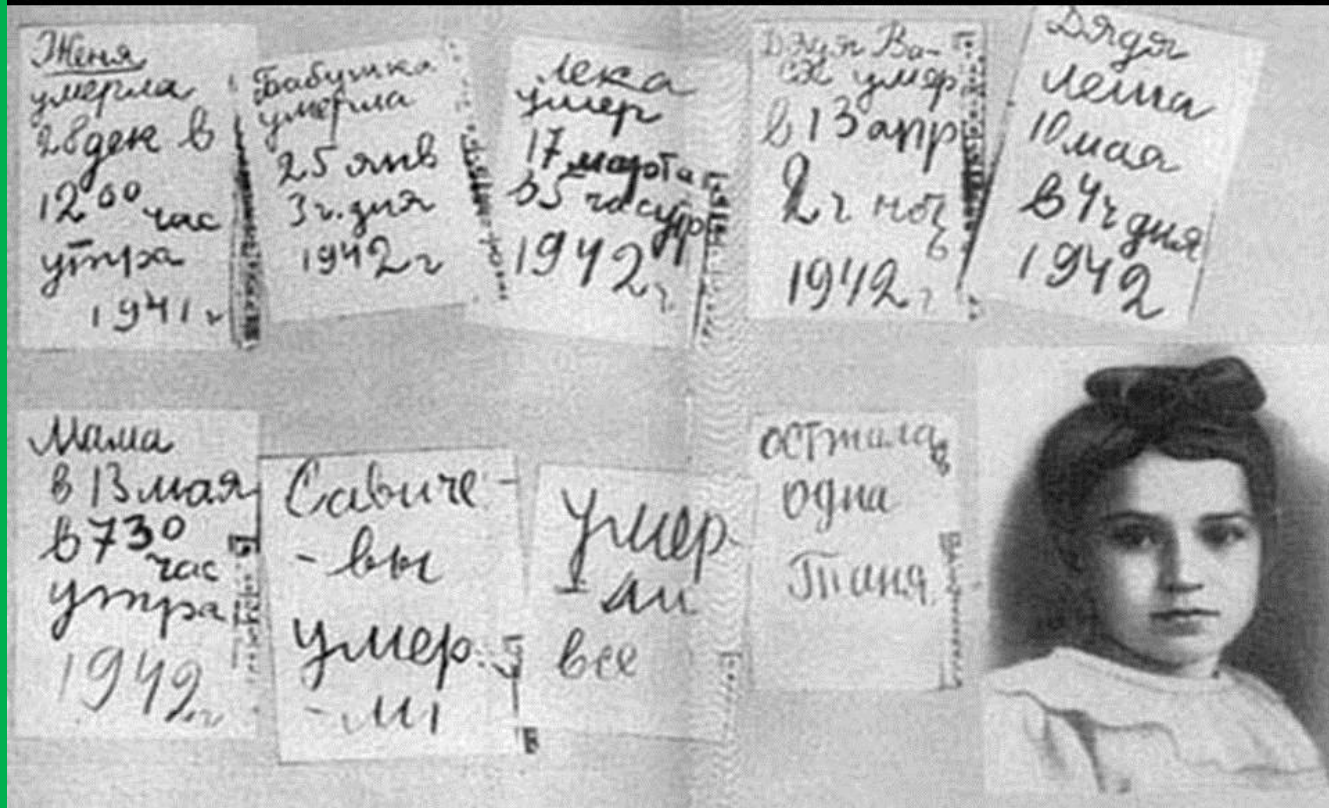 Женя
умерла
28 дек в
12 00 час
утра
1941 г
Бабушка
умерла
25 янв
3 ч. дня
1942 г
Лека
умер
17 марта
в 5 час утр
1942 г
Дядя Ва-
ся умер
в 13 апр
2 ч ноч
ь
1942 г
Дядя
Леша
10 мая
в 4 ч дня
1942
Мама
в 13 мая
в 7 30
час
утра
1942 г
Савиче-
-вы
умер-
-ли
Умер-
-ли
все
Осталась
одна
Таня